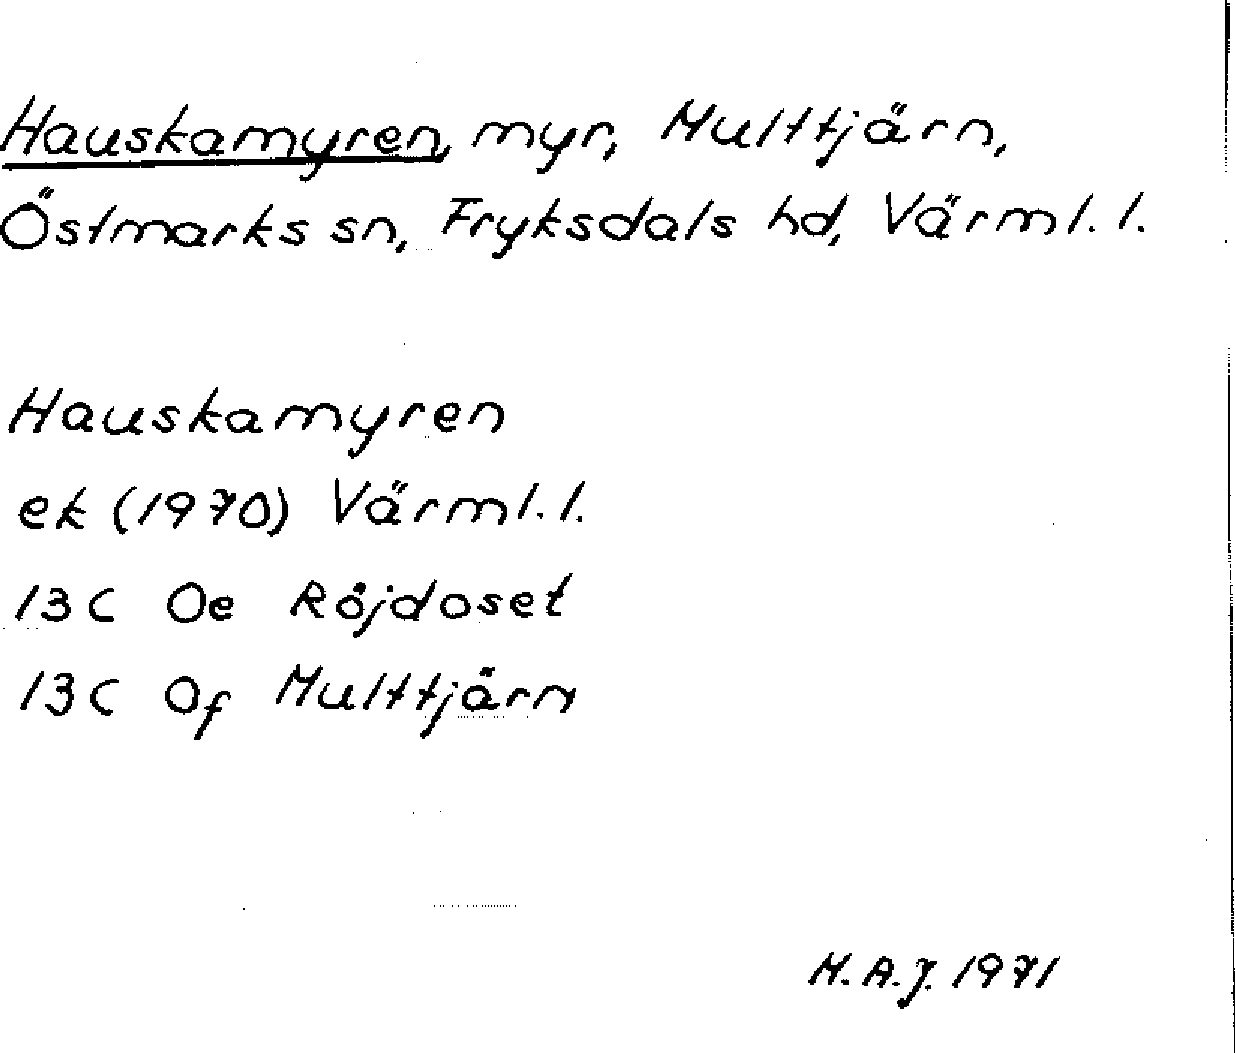 Hauskamyren, myr, Multtjärn,
Östmarks sn, Fryksdals hd, Värml. l.
Hauskamyren
ek (1970) Värml. l.
13C Oe Röjdoset
13C Of Multtjärn
M.A.J. 1971